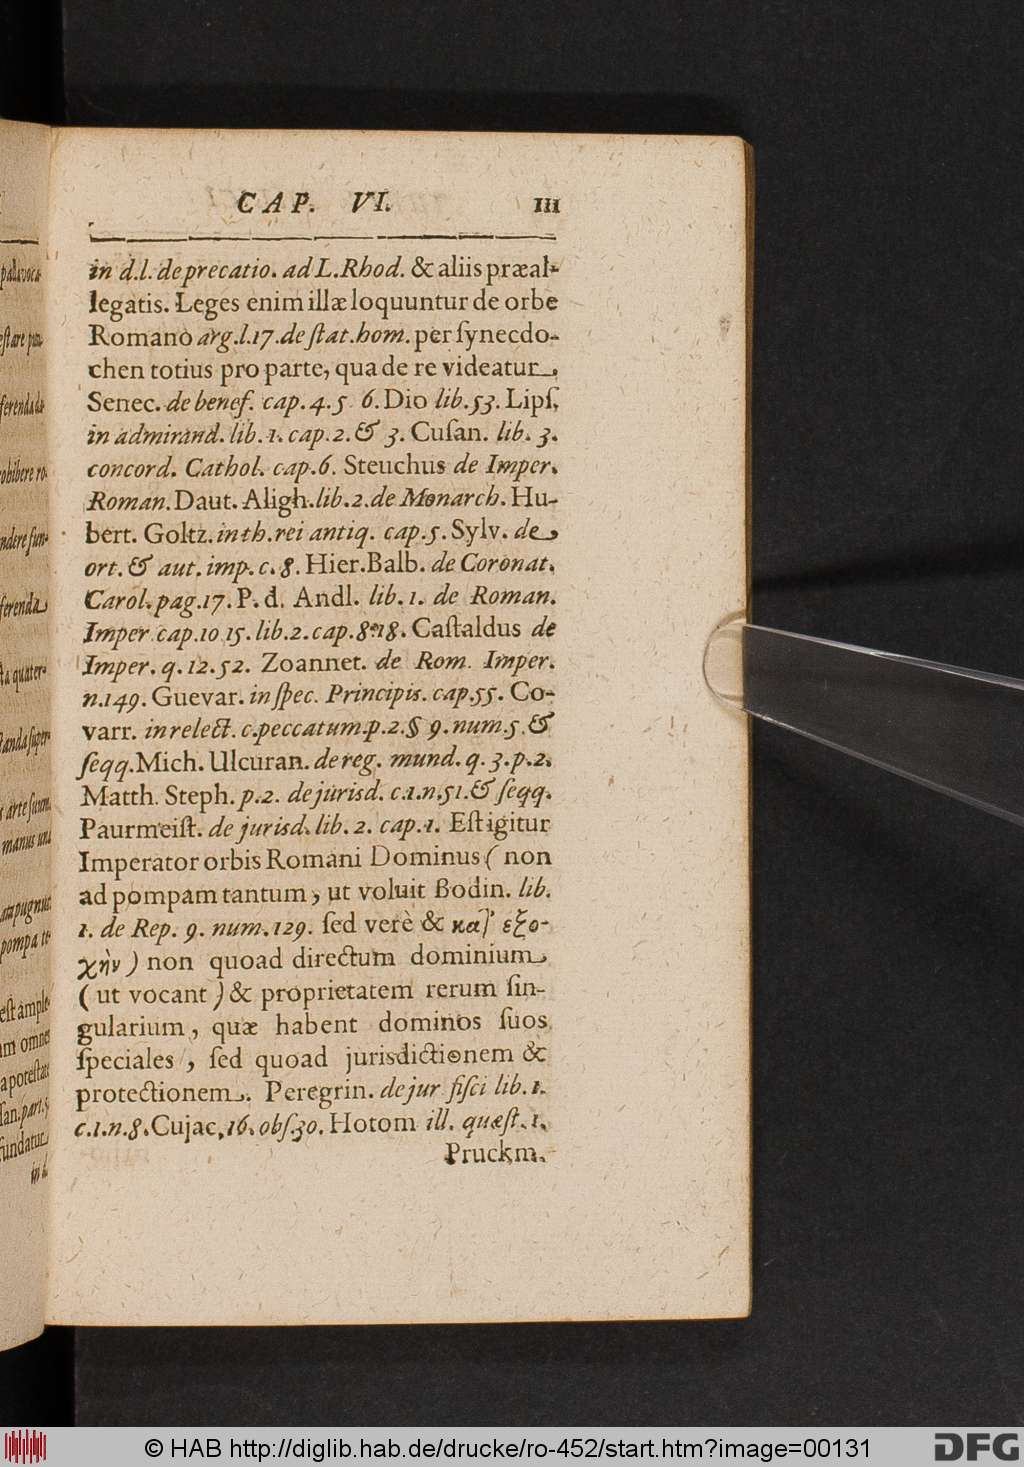 CAP. VI. 111
in d.l. deprecatio. ad L. Rhod. & aliis præal-
legatis. Leges enim illæ loquuntur de orbe
Romano arg.l.17.de ſtat.hom. per ſynecdo-
chen totius pro parte, qua de re videatur
Senec. de benef. cap. 4. 5 6. Dio lib. 53. Lipſ.
in admirand. lib. 1. cap. 2. & 3. Cuſan. lib. 3.
concord. Cathol. cap. 6. Steuchus de Imper.
Roman. Daut. Aligh. lib. 2. de Monarch. Hu-
bert. Goltz. in th. rei antiq. cap. 5. Sylv. de
ort. & aut. imp. c. 8. Hier. Balb. de Coronat.
Carol. pag. 17. P. d. Andl. lib. 1. de Roman.
Imper cap. 10 15. lib. 2. cap. 8. 18. Caſtaldus de
Imper. q. 12. 52. Zoannet. de Rom. Imper.
n. 149. Guevar. in ſpec. Principis. cap. 55. Co-
varr. in relect. c. peccatum. p. 2. § 9. num. 5. &
ſeqq. Mich. Ulcuran. de reg. mund. q. 3. p. 2.
Matth. Steph. p. 2. de jurisd. c. 1. n. 51. & ſeqq.
Paurmeiſt. de jurisd. lib. 2. cap. 1. Eſt igitur
Imperator orbis Romani Dominus ( non
ad pompam tantum, ut voluit Bodin. lib.
1. de Rep. 9. num. 129. ſed verè & κατ' εξο-
χὴν ) non quoad directum dominium
( ut vocant ) & proprietatem rerum ſin-
gularium, quæ habent dominos ſuos
ſpeciales, ſed quoad jurisdictionem &
protectionem. Peregrin. de jur fiſci lib. 1.
c. 1. n. 8. Cujac. 16. obſ. 30. Hotom ill. quæſt. 1.
Pruckm.
© HAB http://diglib.hab.de/drucke/ro-452/start.htm?image=00131
DFG